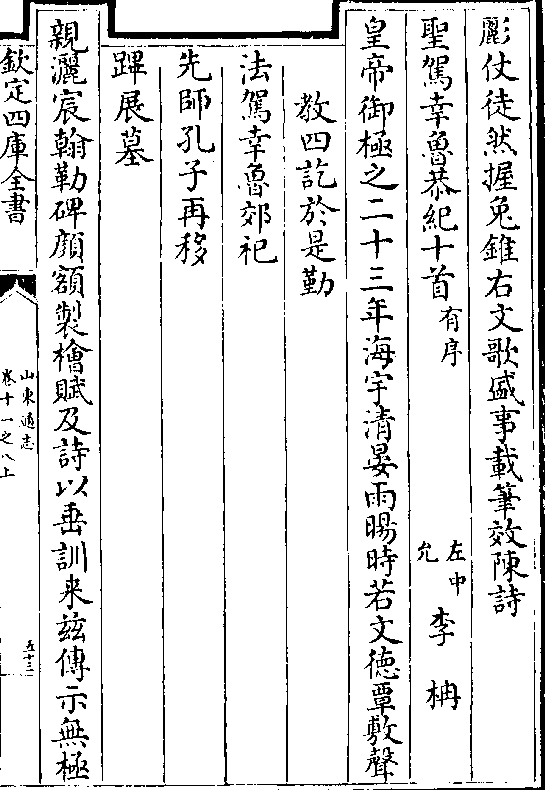 彫仗徒然握兔錐右文歌盛事載筆效陳詩
聖駕幸魯恭紀十首有序 左中允 李柟
皇帝御極之二十三年海宇清晏雨暘時若文德覃敷聲
教四訖於是勤
法駕幸魯郊祀
先師孔子再移
蹕展墓
親灑宸翰勒碑顔額製檜賦及詩以垂訓来兹傳示無極
欽定四庫全書
山東通志
卷十一之八上
五十三